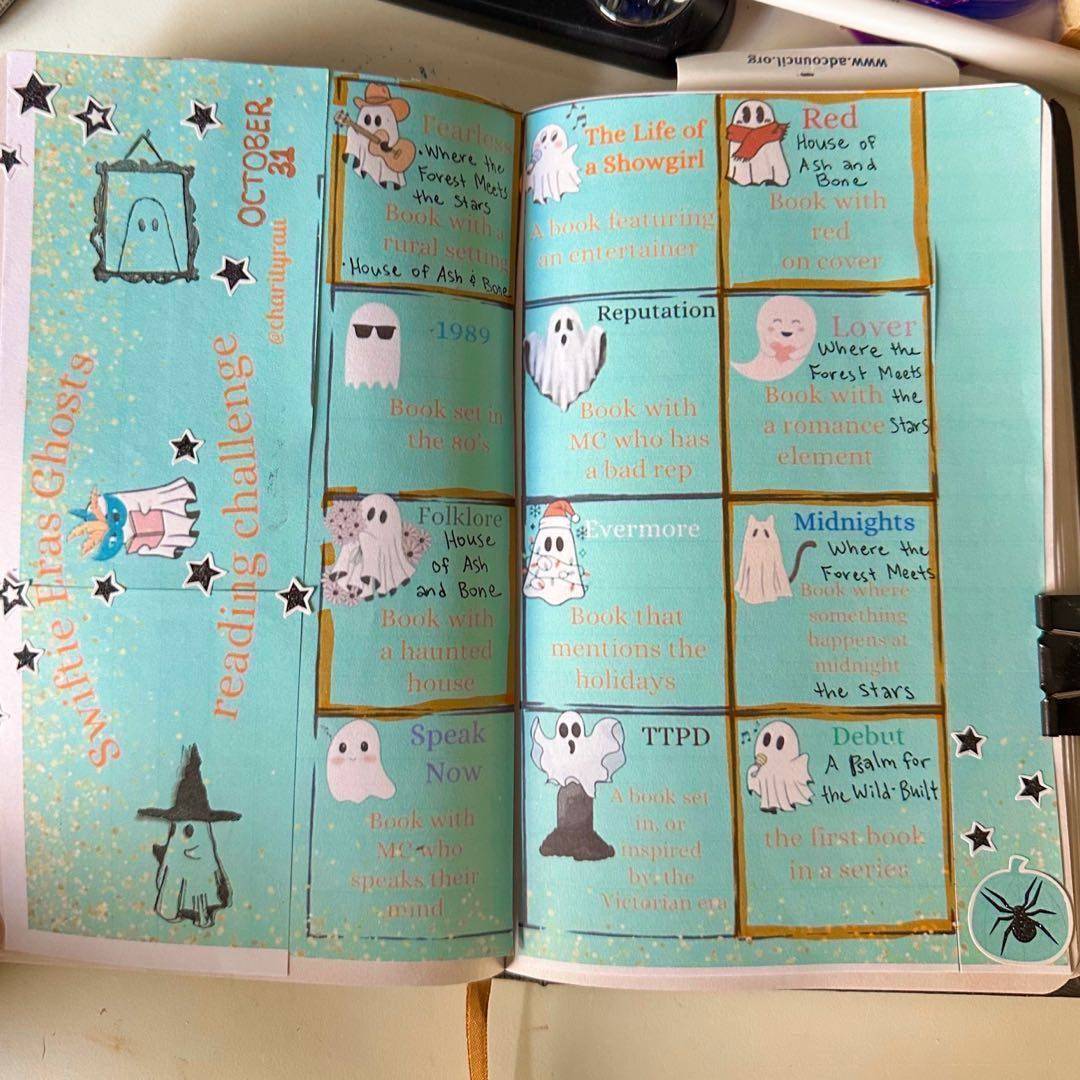 www.adcouncil.org
Swiftie Eras Ghosts
reading challenge
OCTOBER
31
@charityraw
Fearless
• Where the
Forest Meets
the Stars
Book with a
rural setting
• House of Ash & Bone
The Life of
a Showgirl
A book featuring
an entertainer
Red
House of
Ash and
Bone
Book with
red
on cover
1989
Book set in
the 80's
Reputation
Book with
MC who has
a bad rep
Lover
Where the
Forest Meets
Book with the
a romance Stars
element
Folklore
House
of Ash
and Bone
Book with
a haunted
house
Evermore
Book that
mentions the
holidays
Midnights
Where the
Forest Meets
Book where
something
happens at
midnight
the Stars
Speak
Now
Book with
MC who
speaks their
mind
TTPD
A book set
in, or
inspired
by, the
Victorian era
Debut
A Psalm for
the Wild-Built
the first book
in a series